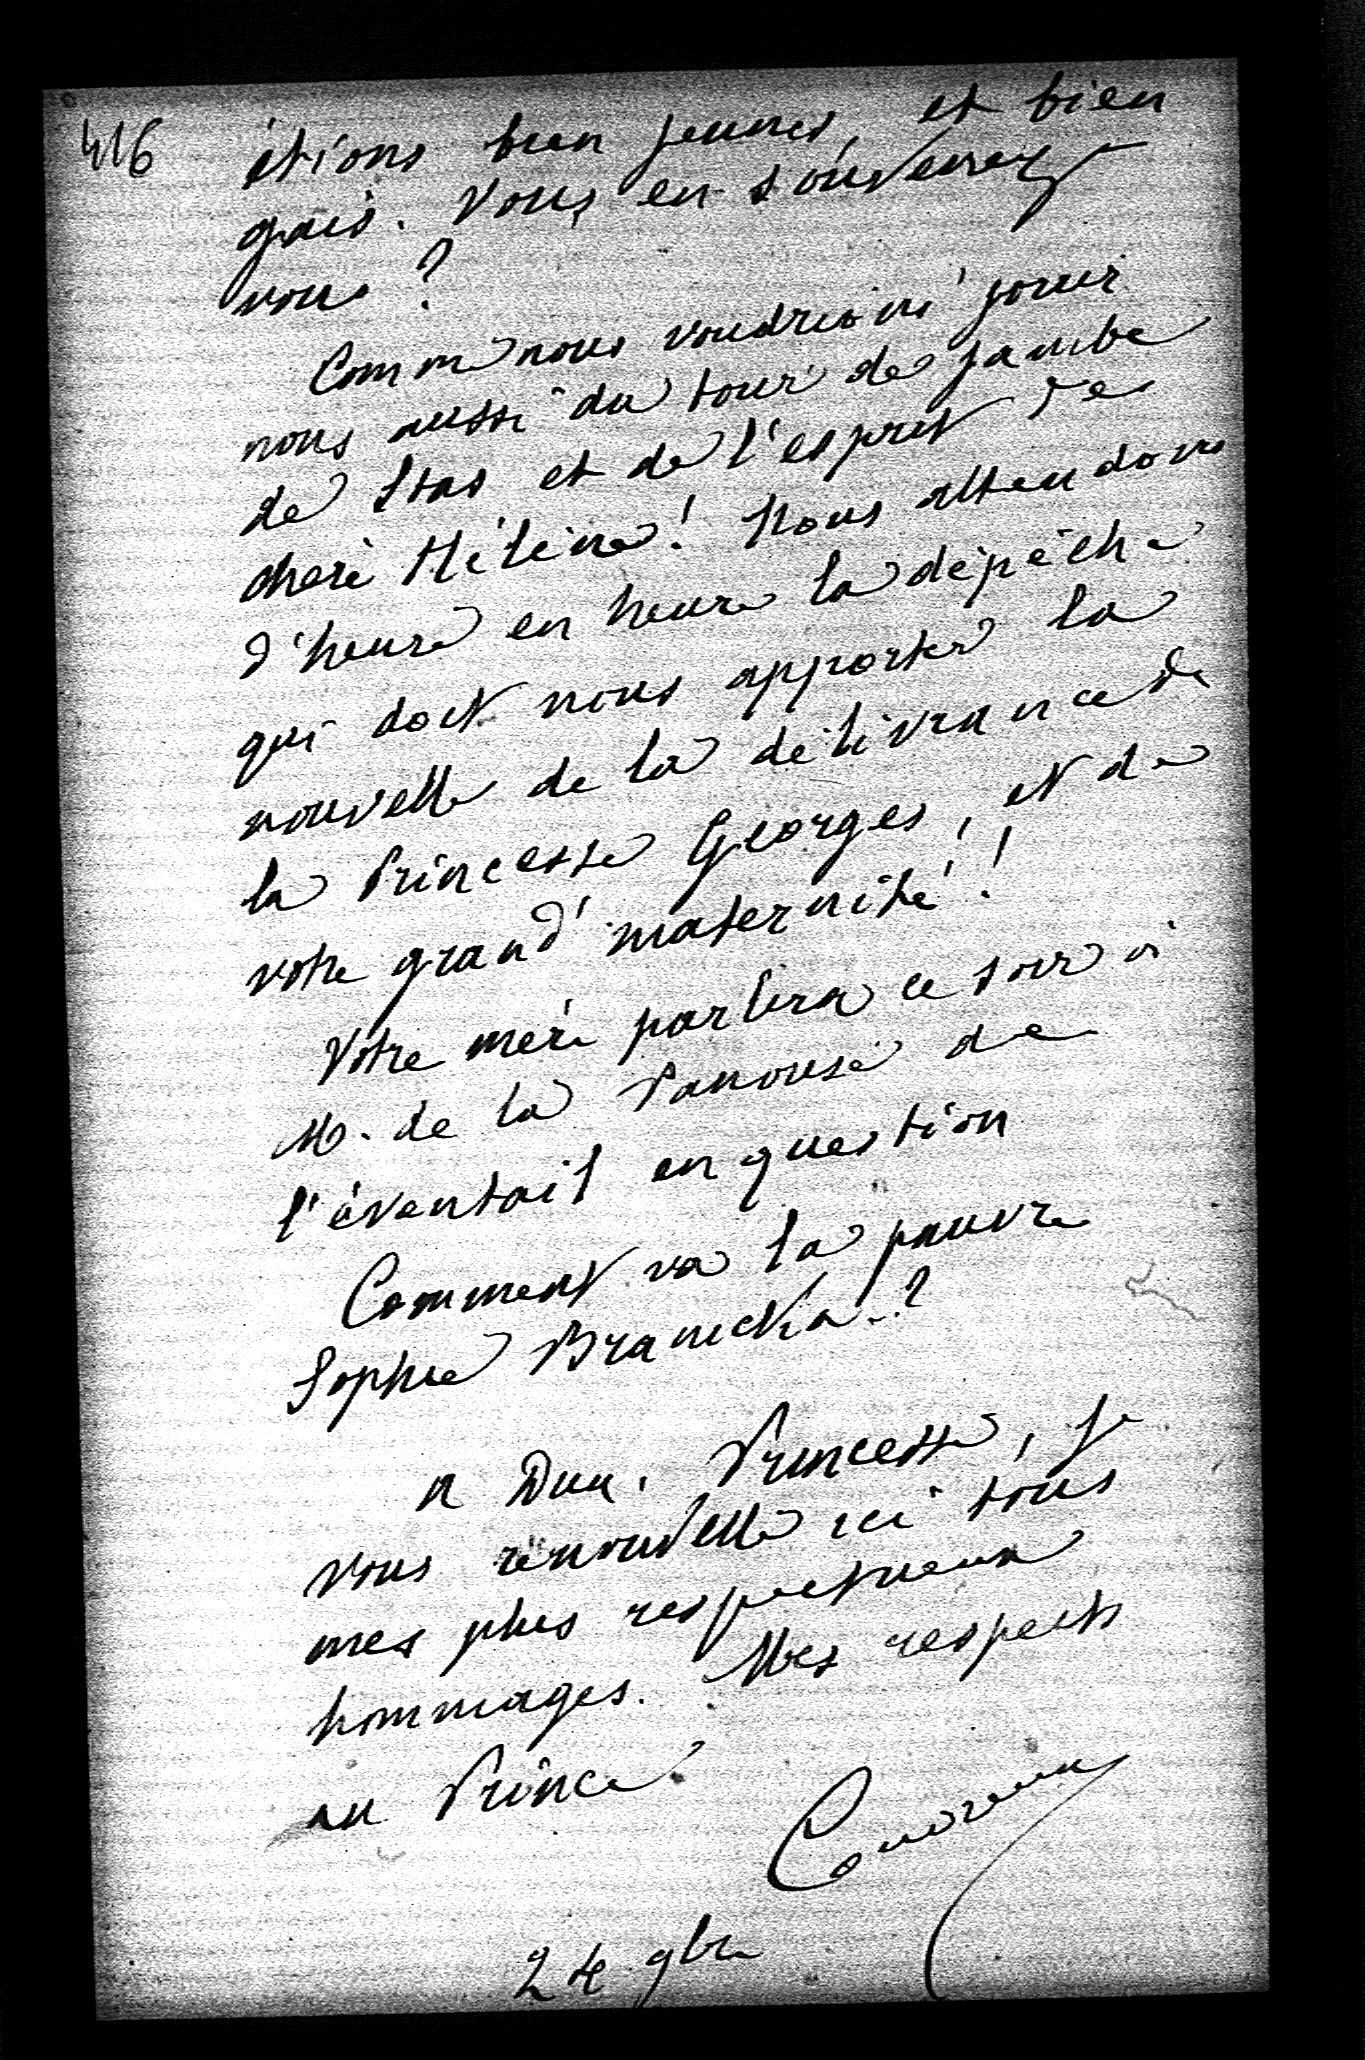 416
étions bien jeunes, et bien
gais. Vous en souvenez
vous ?
Comme nous voudrions jouir
nous aussi du tour de jambe
de Stas et de l'esprit de
chère Hélène ! Nous attendons
d'heure en heure la dépêche
qui doit nous apporter la
nouvelle de la délivrance de
la Princesse Georges, et de
votre grand'maternité !
Votre mère parlera ce soir à
M. de la Panouse de
l'éventail en question
Comment va la pauvre
Sophie Branicka ?
a Dieu, Princesse, je
vous renouvelle ici tous
mes plus respectueux
hommages. Mes respects
au Prince.
24 9bre